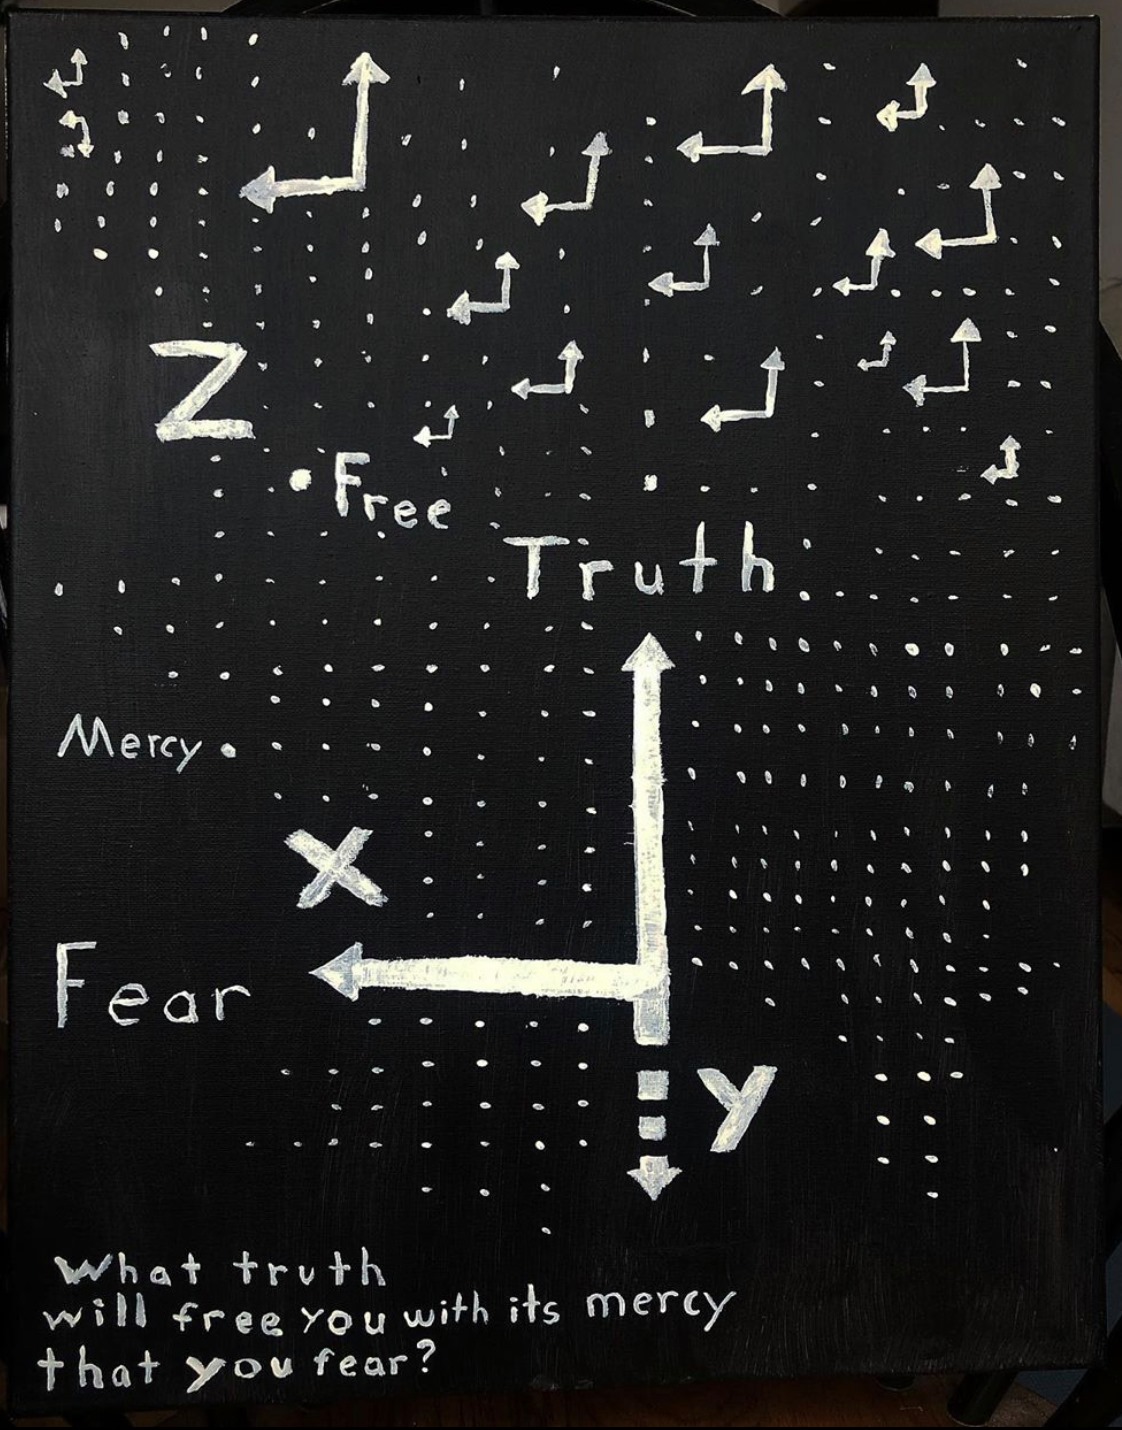 Z
Free
Truth
Mercy
X
Fear
y
What truth
will free you with its mercy
that you fear?